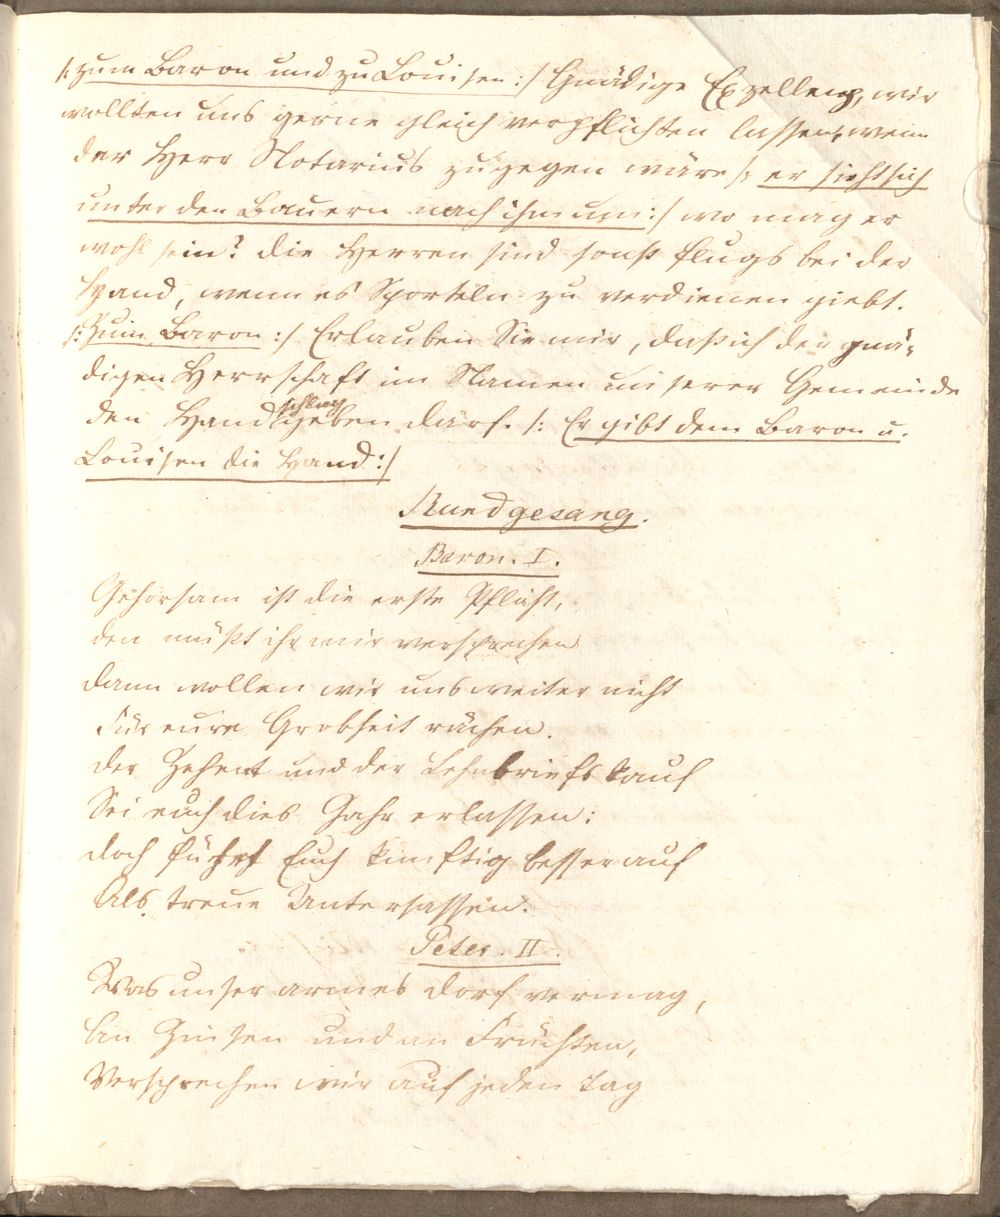 /: zum Baron und zu Louisen :/ Gnädige Exzellenz, wir
wollten uns gerne gleich verpflichten lassen, wenn
der Herr Notarius zugegen wäre /: er sieht sich
unter den Bauern nach ihm um :/ wo mag er
wohl sein? die Herren sind sonst flugs bei der
Hand, wenn es Sporteln zu verdienen giebt.
/: Zum Baron :/ Erlauben Sie mir, daß ich der gnä-
digen Herrschaft im Namen unserer Gemeinde
den Handschlag geben darf. /: Er gibt dem Baron u.
Louisen die Hand :/
Rundgesang.
Baron. I.
Gehorsam ist die erste Pflicht,
den müßt ihr mir versprechen
dann wollen wir uns weiter nicht
Für eure Grobheit rächen.
der Zehent und der Lehnbriefskauf
Sei euch dies Jahr erlassen:
doch führt Euch künftig besser auf
Als treue Untersassen.
Peter. II.
Was unser armes Dorf vermag,
An Zinsen und an Früchten,
Versprechen wir auf jeden Tag